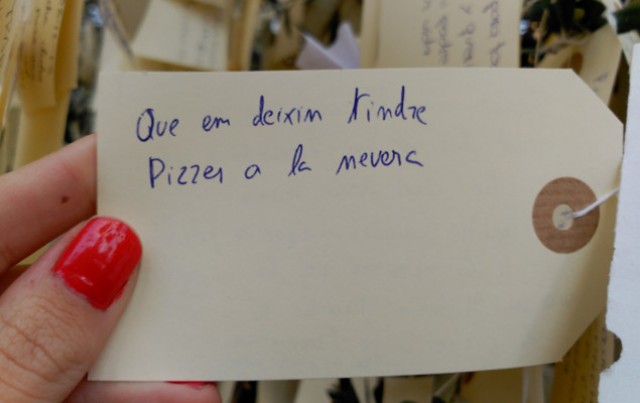 Que em deixin tindre
Pizzes a la nevera